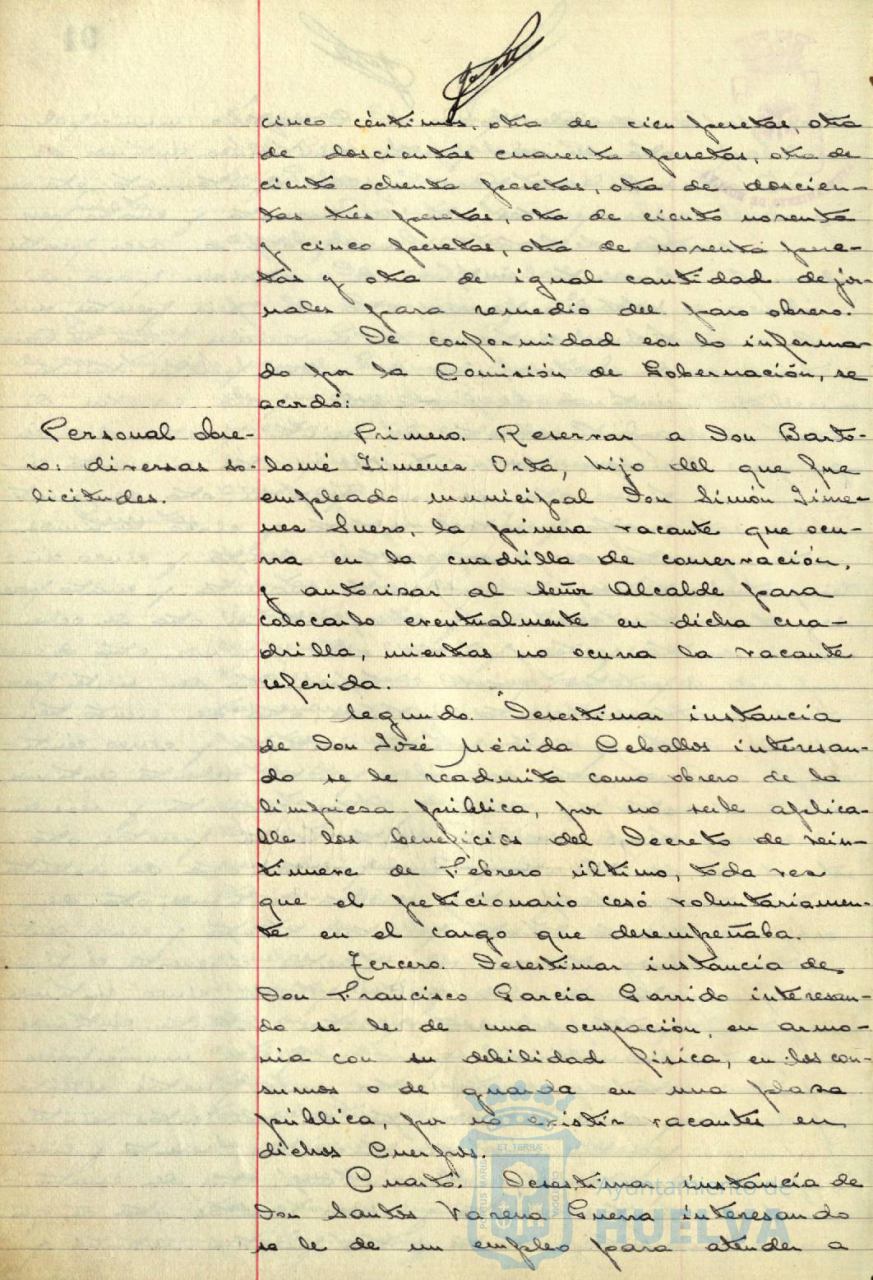 cinco céntimos, otra de cien pesetas, otra
de doscientas cuarenta pesetas, otra de
ciento ochenta pesetas, otra de doscien-
tas tres pesetas, otra de ciento noventa
y cinco pesetas, otra de noventa pese-
tas y otra de igual cantidad de jor-
nales para remedio del paro obrero.
De conformidad con lo informa-
do por la Comisión de Gobernación, se
acordó:
Personal obre-
ro: diversas so-
licitudes.
Primero. Reservar a Don Barto-
lomé Jimenes Orta, hijo del que fue
empleado municipal Don Simón Jime-
nes Suero, la primera vacante que ocu-
rra en la cuadrilla de conservación,
y autorisar al Señor Alcalde para
colocarlo eventualmente en dicha cua-
drilla, mientras no ocurra la vacante
referida.
Segundo. Desestimar instancia
de Don José Mérida Ceballos interesan-
do se le readmita como obrero de la
limpiesa pública, por no serle aplica-
ble los beneficios del Decreto de vein-
tinueve de Febrero último, toda ves
que el peticionario cesó voluntariamen-
te en el cargo que desempeñaba.
Tercero. Desestimar instancia de
Don Francisco García Garrido interesan-
do se le de una ocupación, en armo-
nia con su debilidad física, en los con-
sumos o de guarda en una plasa
pública, por no existir vacantes en
dichos Cuerpos.
Cuarto. Desestimar instancia de
Don Santos Varena Guerra interesando
se le de un empleo para atender a
Ayuntamiento de
HUELVA